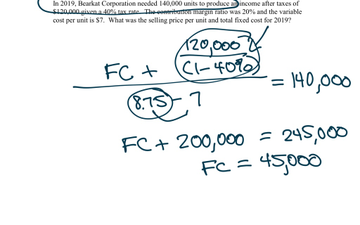 In 2019, Bearkat Corporation needed 140,000 units to produce an income after taxes of
$120,000 given a 40% tax rate. The contribution margin ratio was 20% and the variable
cost per unit is $7. What was the selling price per unit and total fixed cost for 2019?
120,000
FC + (1-40%)
8.75 - 7
= 140,000
FC + 200,000 = 245,000
FC = 45,000